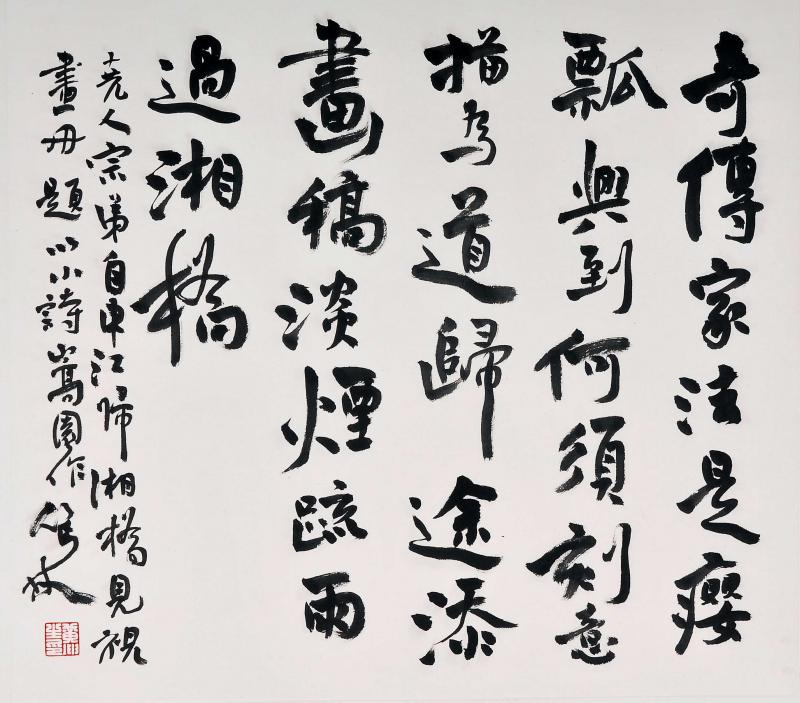 奇傳家法是癭
瓢興到何須刻意
描為道歸途添
畫稿淡煙疏雨
過湘橋
十堯人宗弟自申江歸湘橋見視
畫冊題以小詩嵩園作